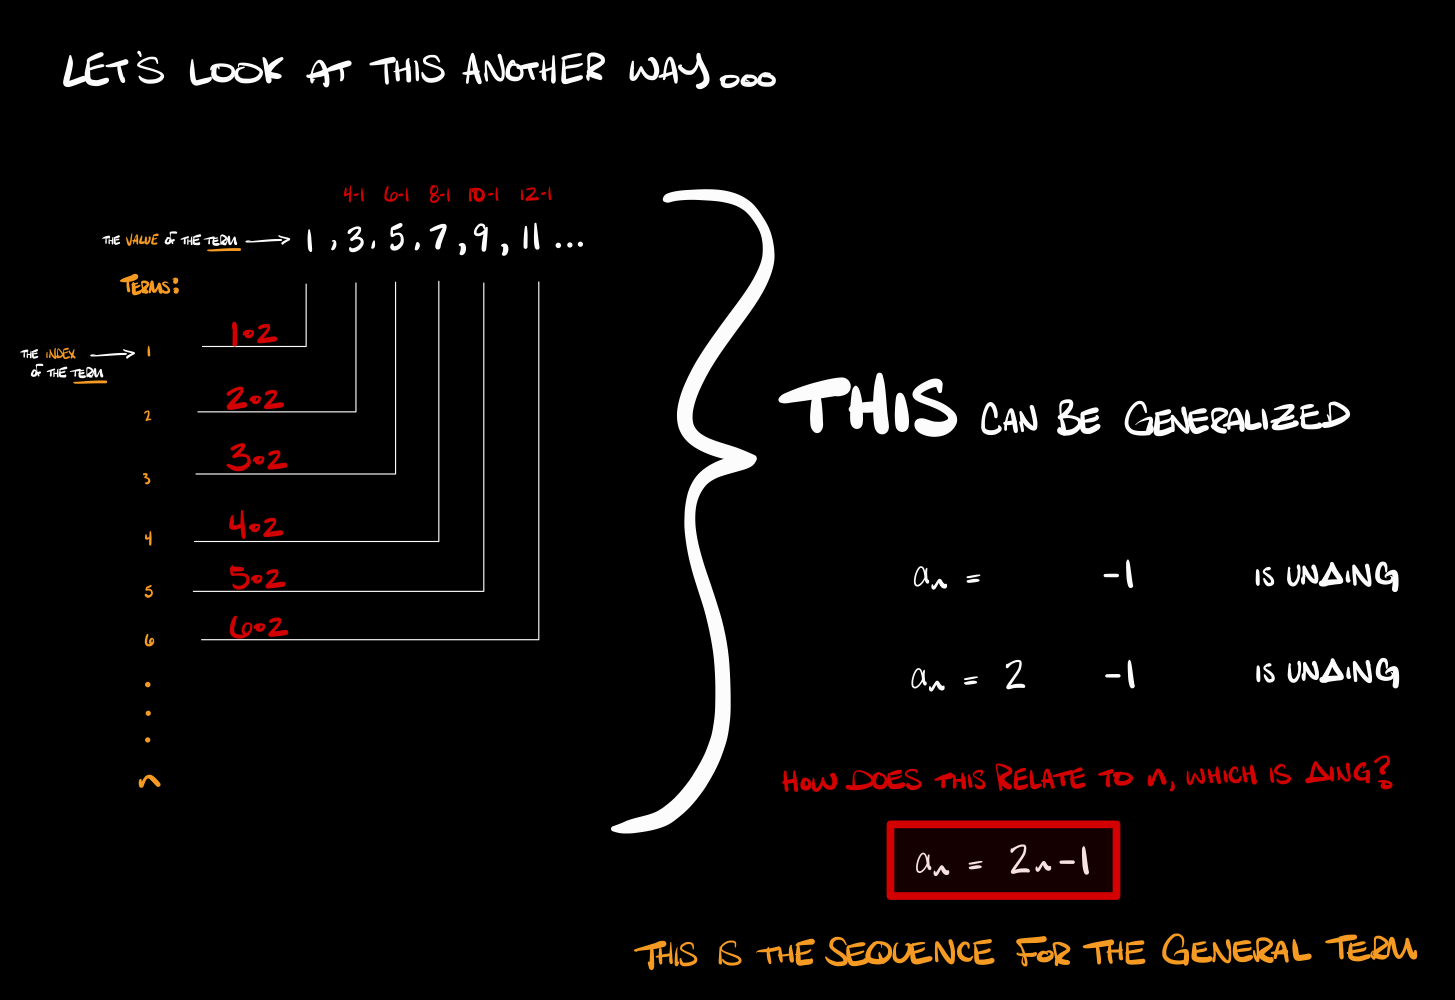 LET'S LOOK AT THIS ANOTHER WAY...
4-1 6-1 8-1 10-1 12-1
THE VALUE OF THE TERM → 1, 3, 5, 7, 9, 11...
TERMS:
1·2
THE INDEX → 1
OF THE TERM
2·2
2
3·2
3
4·2
4
5·2
5
6·2
6
.
.
.
n
THIS CAN BE GENERALIZED
aₙ = -1 IS UNΔING
aₙ = 2 -1 IS UNΔING
HOW DOES THIS RELATE TO n, WHICH IS ΔING?
aₙ = 2n-1
THIS IS THE SEQUENCE FOR THE GENERAL TERM